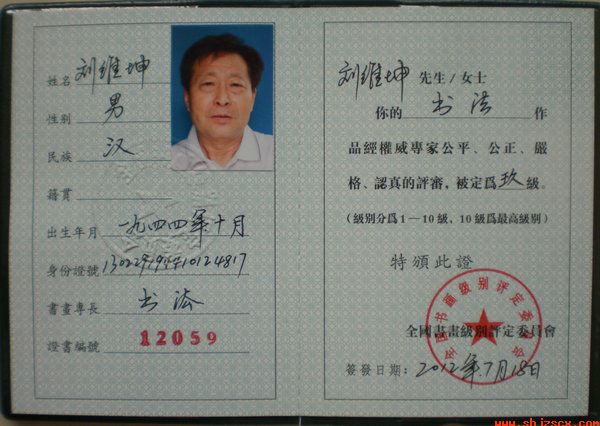 姓名 刘维坤
性别 男
民族 汉
籍貫
出生年月 一九四四年十月
身份證號
書畫專長 书法
證書編號 12059
刘维坤 先生/女士
你的 书法 作
品經權威專家公平、公正、嚴
格、認真的評審，被定爲 玖 級。
(級别分爲1—10級，10級爲最高級别)
特頒此證
全國書畫級别評定委員會
簽發日期: 2012年7月18日
全国书画级别评定委员会
www.shizscx.com